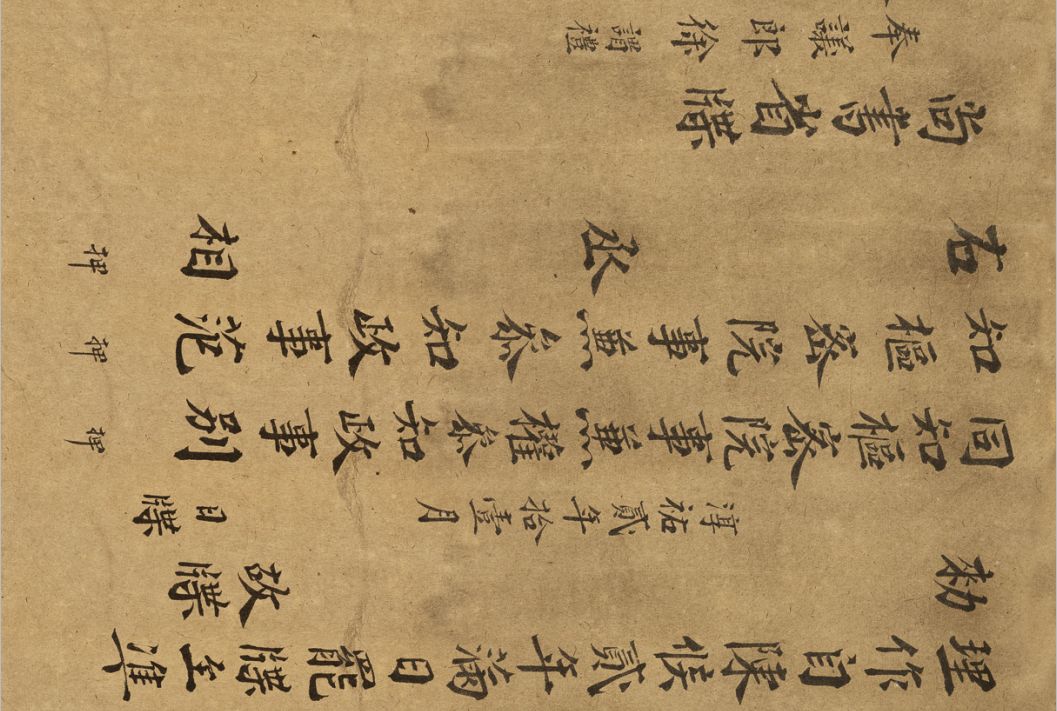 理作自陳候貳年滿日罷牒至準
勅故牒
淳祐貳年拾壹月日牒
同知樞密院事兼權參知政事別押
知樞密院事兼參知政事范押
右丞相押
尚書省牒
奉議郎徐謂禮